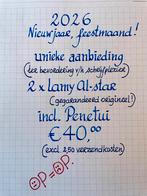 2026
Nieuwjaar, feestmaand!
unieke aanbieding
(ter bevordering v/h schrijfplezier)
2 x Lamy Al-star
(gegarandeerd origineel!)
incl. Penetui
€ 40,00
(excl. 2,50 verzendkosten)
OP = OP.